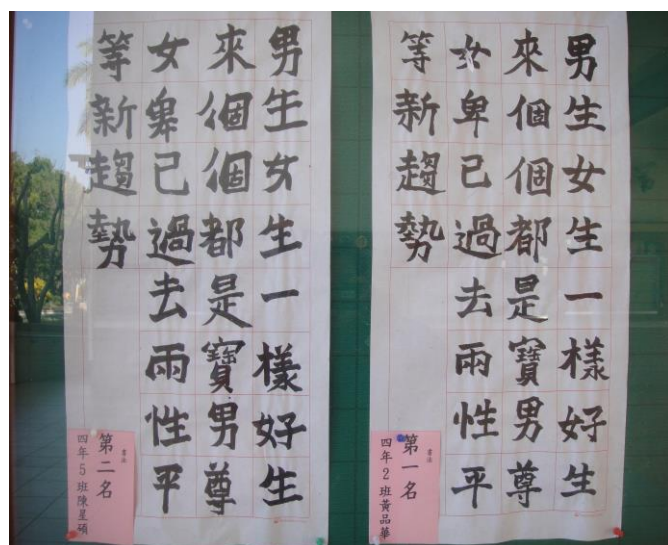 男生女生一樣好生
來個個都是寶男尊
女卑已過去兩性平
等新趨勢
書法
第一名
四年2班黃品華
男生女生一樣好生
來個個都是寶男尊
女卑已過去兩性平
等新趨勢
書法
第二名
四年5班陳星碩